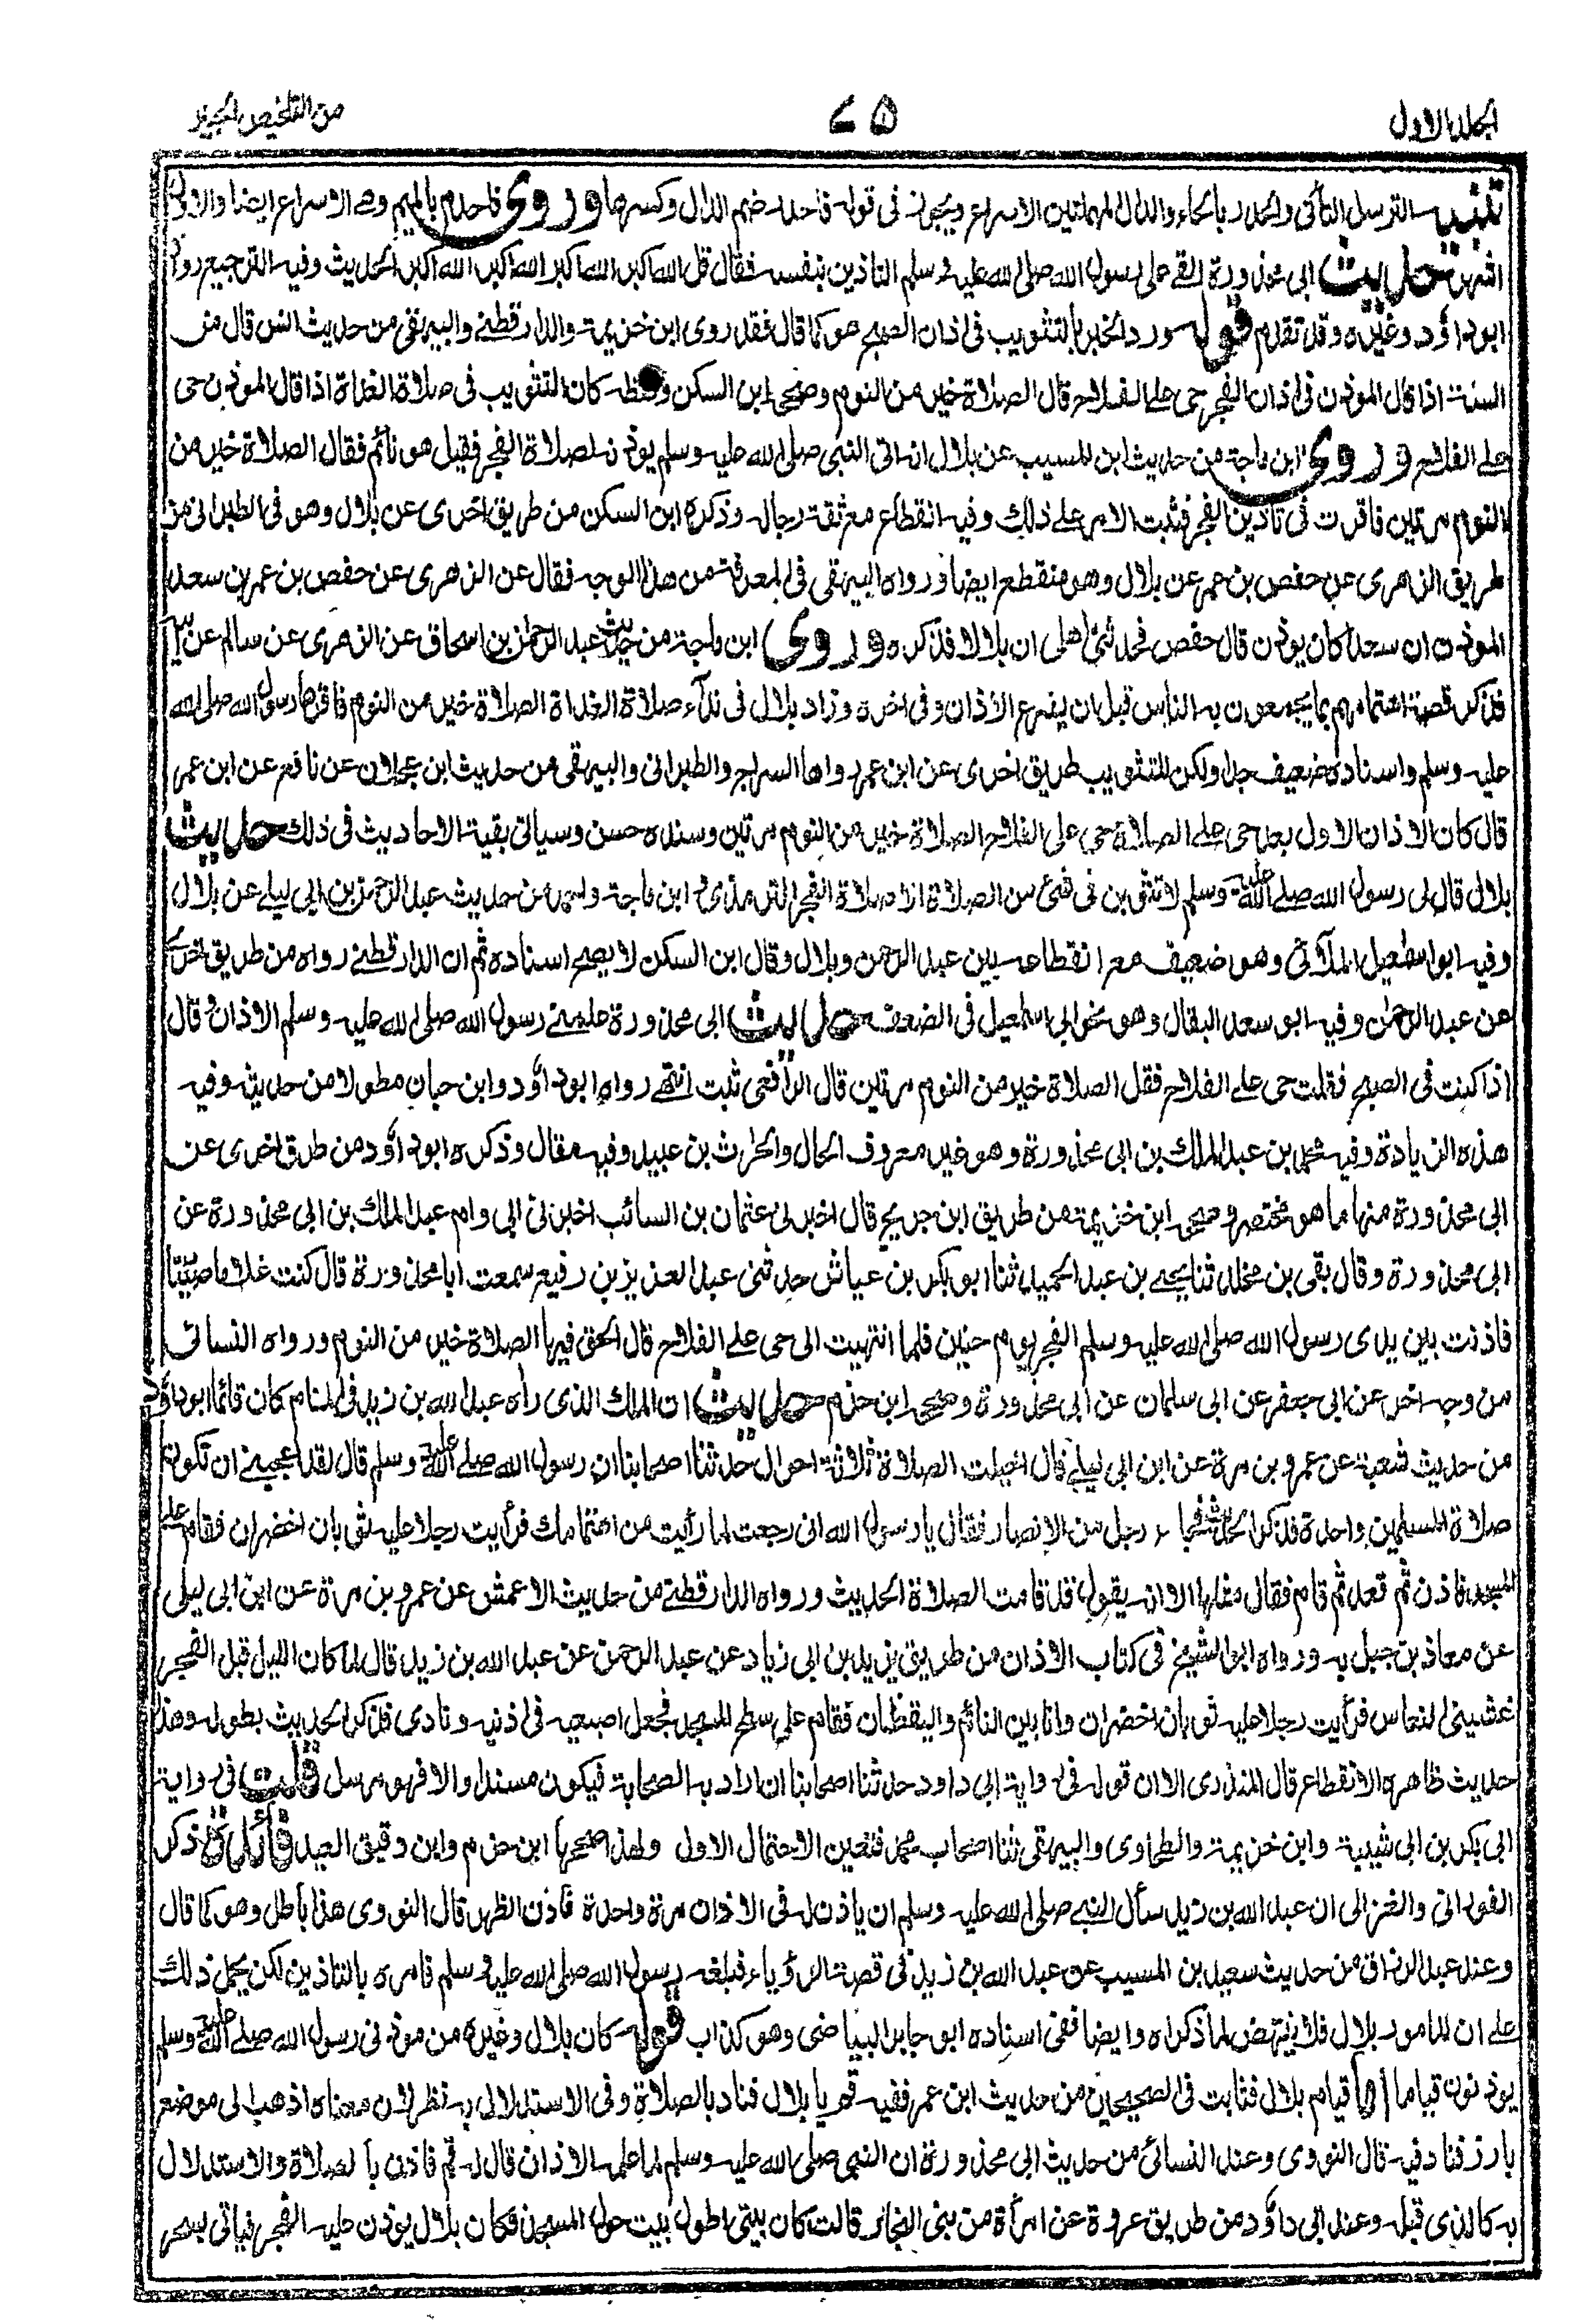 الجلد الاول
٧٥
من التلخيص الحبير
تنبيه الترسل التأنى والحدر بالحاء والدال المهملتين الاسراع ويجوز فى قوله فاحدر ضم الدال وكسرها وروى فاحذم بالميم وهى الاسراع ايضا والاول
اشهر حديث ابى محذورة القى على رسول الله صلى الله عليه وسلم التاذين بنفسه فقال قل الله اكبر الله اكبر الله اكبر الله اكبر الحديث وفيه الترجيع رواه
ابوداؤد وغيره وقد تقدم قوله ورد الخبر بالتثويب فى اذان الصبح هو كما قال فقد روى ابن خزيمة والدارقطنى والبيهقى من حديث انس قال من
السنة اذا قال الموذن فى اذان الفجر حى على الفلاح قال الصلاة خير من النوم وصححه ابن السكن ولفظه كان التثويب فى صلاة الغداة اذا قال الموذن حى
على الفلاح وروى ابن ماجة من حديث ابن المسيب عن بلال انه اتى النبى صلى الله عليه وسلم يوذنه لصلاة الفجر فقيل هو نائم فقال الصلاة خير من
النوم مرتين فاقرت فى تاذين الفجر فثبت الامر على ذلك وفيه انقطاع مع ثقة رجاله وذكره ابن السكن من طريق اخرى عن بلال وهو فى الطبرانى من
طريق الزهرى عن حفص بن عمر عن بلال وهو منقطع ايضا ورواه البيهقى فى المعرفة من هذا الوجه فقال عن الزهرى عن حفص بن عمر بن سعد
الموذن ان سعدا كان يوذن قال حفص فحدثنى اهلى ان بلالا فذكره وروى ابن ماجة من حديث عبد الرحمن بن اسحاق عن الزهرى عن سالم عن ابيه
فذكر قصة اهتمامهم بما يجمعون به الناس قبل ان يشرع الأذان وفى اخره وزاد بلال فى نداء صلاة الغداة الصلاة خير من النوم فاقرها رسول الله صلى الله
عليه وسلم واسناده ضعيف جدا ولكن للتثويب طريق اخرى عن ابن عمر رواها السراج والطبرانى والبيهقى من حديث ابن عجلان عن نافع عن ابن عمر
قال كان الاذان الاول بعد حى على الصلاة حى على الفلاح الصلاة خير من النوم مرتين وسنده حسن وسياتى بقية الاحاديث فى ذلك حديث
بلال قال لى رسول الله صلى الله عليه وسلم لا تثوبن فى شئ من الصلاة الا صلاة الفجر الترمذى و ابن ماجة واحمد من حديث عبد الرحمن بن ابى ليلى عن بلال
وفيه ابو اسمعيل الملائى وهو ضعيف مع انقطاعه بين عبد الرحمن وبلال وقال ابن السكن لا يصح اسناده ثم ان الدارقطنى رواه من طريق اخرى
عن عبد الرحمن وفيه ابو سعد البقال وهو نحو ابى اسمعيل فى الضعف حديث ابى محذورة علمنى رسول الله صلى الله عليه وسلم الاذان وقال
اذا كنت فى الصبح فقلت حى على الفلاح فقل الصلاة خير من النوم مرتين قال الرافعى ثبت انتهى رواه ابوداؤد وابن حبان مطولا من حديثه وفيه
هذه الزيادة وفيه محمد بن عبد الملك بن ابى محذورة وهو غير معروف الحال والحارث بن عبيد وفيه مقال وذكره ابوداؤد من طرق اخرى عن
ابى محذورة منها ما هو مختصر وصححه ابن خزيمة من طريق ابن جريج قال اخبرنى عثمان بن السائب اخبرنى ابى وام عبد الملك بن ابى محذورة عن
ابى محذورة وقال بقى بن مخلد ثنا يحيى بن عبد الحميد ثنا ابو بكر بن عياش حدثنى عبد العزيز بن رفيع سمعت ابا محذورة قال كنت غلاما صيتا
فاذنت بين يدى رسول الله صلى الله عليه وسلم الفجر يوم حنين فلما انتهيت الى حى على الفلاح قال الحق فيها الصلاة خير من النوم ورواه النسائى
من وجه اخر عن ابى جعفر عن ابى سلمان عن ابى محذورة وصححه ابن حزم حديث ان الملك الذى راه عبد الله بن زيد فى المنام كان قائما ابوداؤد
من حديث شعبة عن عمرو بن مرة عن ابن ابى ليلى قال احيلت الصلاة ثلاثة احوال حدثنا اصحابنا ان رسول الله صلى الله عليه وسلم قال لقد اعجبنى ان تكون
صلاة المسلمين واحدة فذكر الحديث فجاء رجل من الانصار فقال يا رسول الله انى رجعت لما رأيت من اهتمامك فرأيت رجلا عليه ثوبان اخضران فقام على
المسجد فاذن ثم قعد ثم قام فقال مثلها الا انه يقول قد قامت الصلاة الحديث ورواه الدارقطنى من حديث الاعمش عن عمرو بن مرة عن ابن ابى ليلى
عن معاذ بن جبل به ورواه ابو الشيخ فى كتاب الاذان من طريق يزيد بن ابى زياد عن عبد الرحمن عن عبد الله بن زيد قال لما كان الليل قبل الفجر
غشينى النعاس فرأيت رجلا عليه ثوبان اخضران وانا بين النائم واليقظان فقام على سطح المسجد فجعل اصبعيه فى اذنيه ونادى فذكر الحديث بطوله وهذا
حديث ظاهره الانقطاع قال المنذرى الا ان قوله فى رواية ابى داود حدثنا اصحابنا ان اراد به الصحابة فيكون مسندا والا فهو مرسل قلت فى رواية
ابى بكر بن ابى شيبة وابن خزيمة والطحاوى والبيهقى ثنا اصحاب محمد فتعين الاحتمال الاول ولهذا صححها ابن حزم وابن دقيق العيد فائدة ذكر
الفورانى والغزالى ان عبد الله بن زيد سأل النبى صلى الله عليه وسلم ان ياذن له فى الاذان مرة واحدة فاذن الظهر قال النووى هذا باطل وهو كما قال
وعند عبد الرزاق من حديث سعيد بن المسيب عن عبد الله بن زيد فى قصة الرؤياء فبلغه رسول الله صلى الله عليه وسلم فامره بالتاذين لكن يحمل ذلك
على ان المامور بلال فلا ينتهض لما ذكراه وايضا ففى اسناده ابو جابر البياضى وهو كذاب قوله كان بلال وغيره من موذنى رسول الله صلى الله عليه وسلم
يوذنون قياما أما قيام بلال فثابت فى الصحيحين من حديث ابن عمر ففيه قم يا بلال فناد بالصلاة وفى الاستدلال به نظر لان معناه اذهب الى موضع
بارز فناد فيه قال النووى وعند النسائى من حديث ابى محذورة ان النبى صلى الله عليه وسلم لما علمه الاذان قال له قم فاذن بالصلاة والاستدلال
به كالذى قبله وعند ابى داؤد من طريق عروة عن امرأة من بنى النجار قالت كان بيتى اطول بيت حول المسجد فكان بلال يوذن عليه الفجر فياتى بسحر